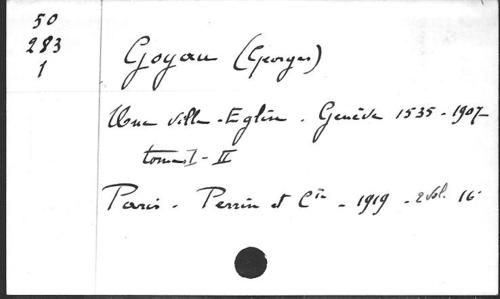 50
283
1
Goyau (Georges)
Une ville-Eglise. Genève 1535-1907
tomes I-II
Paris - Perrin et Cie - 1919 - 2 vol. 16°